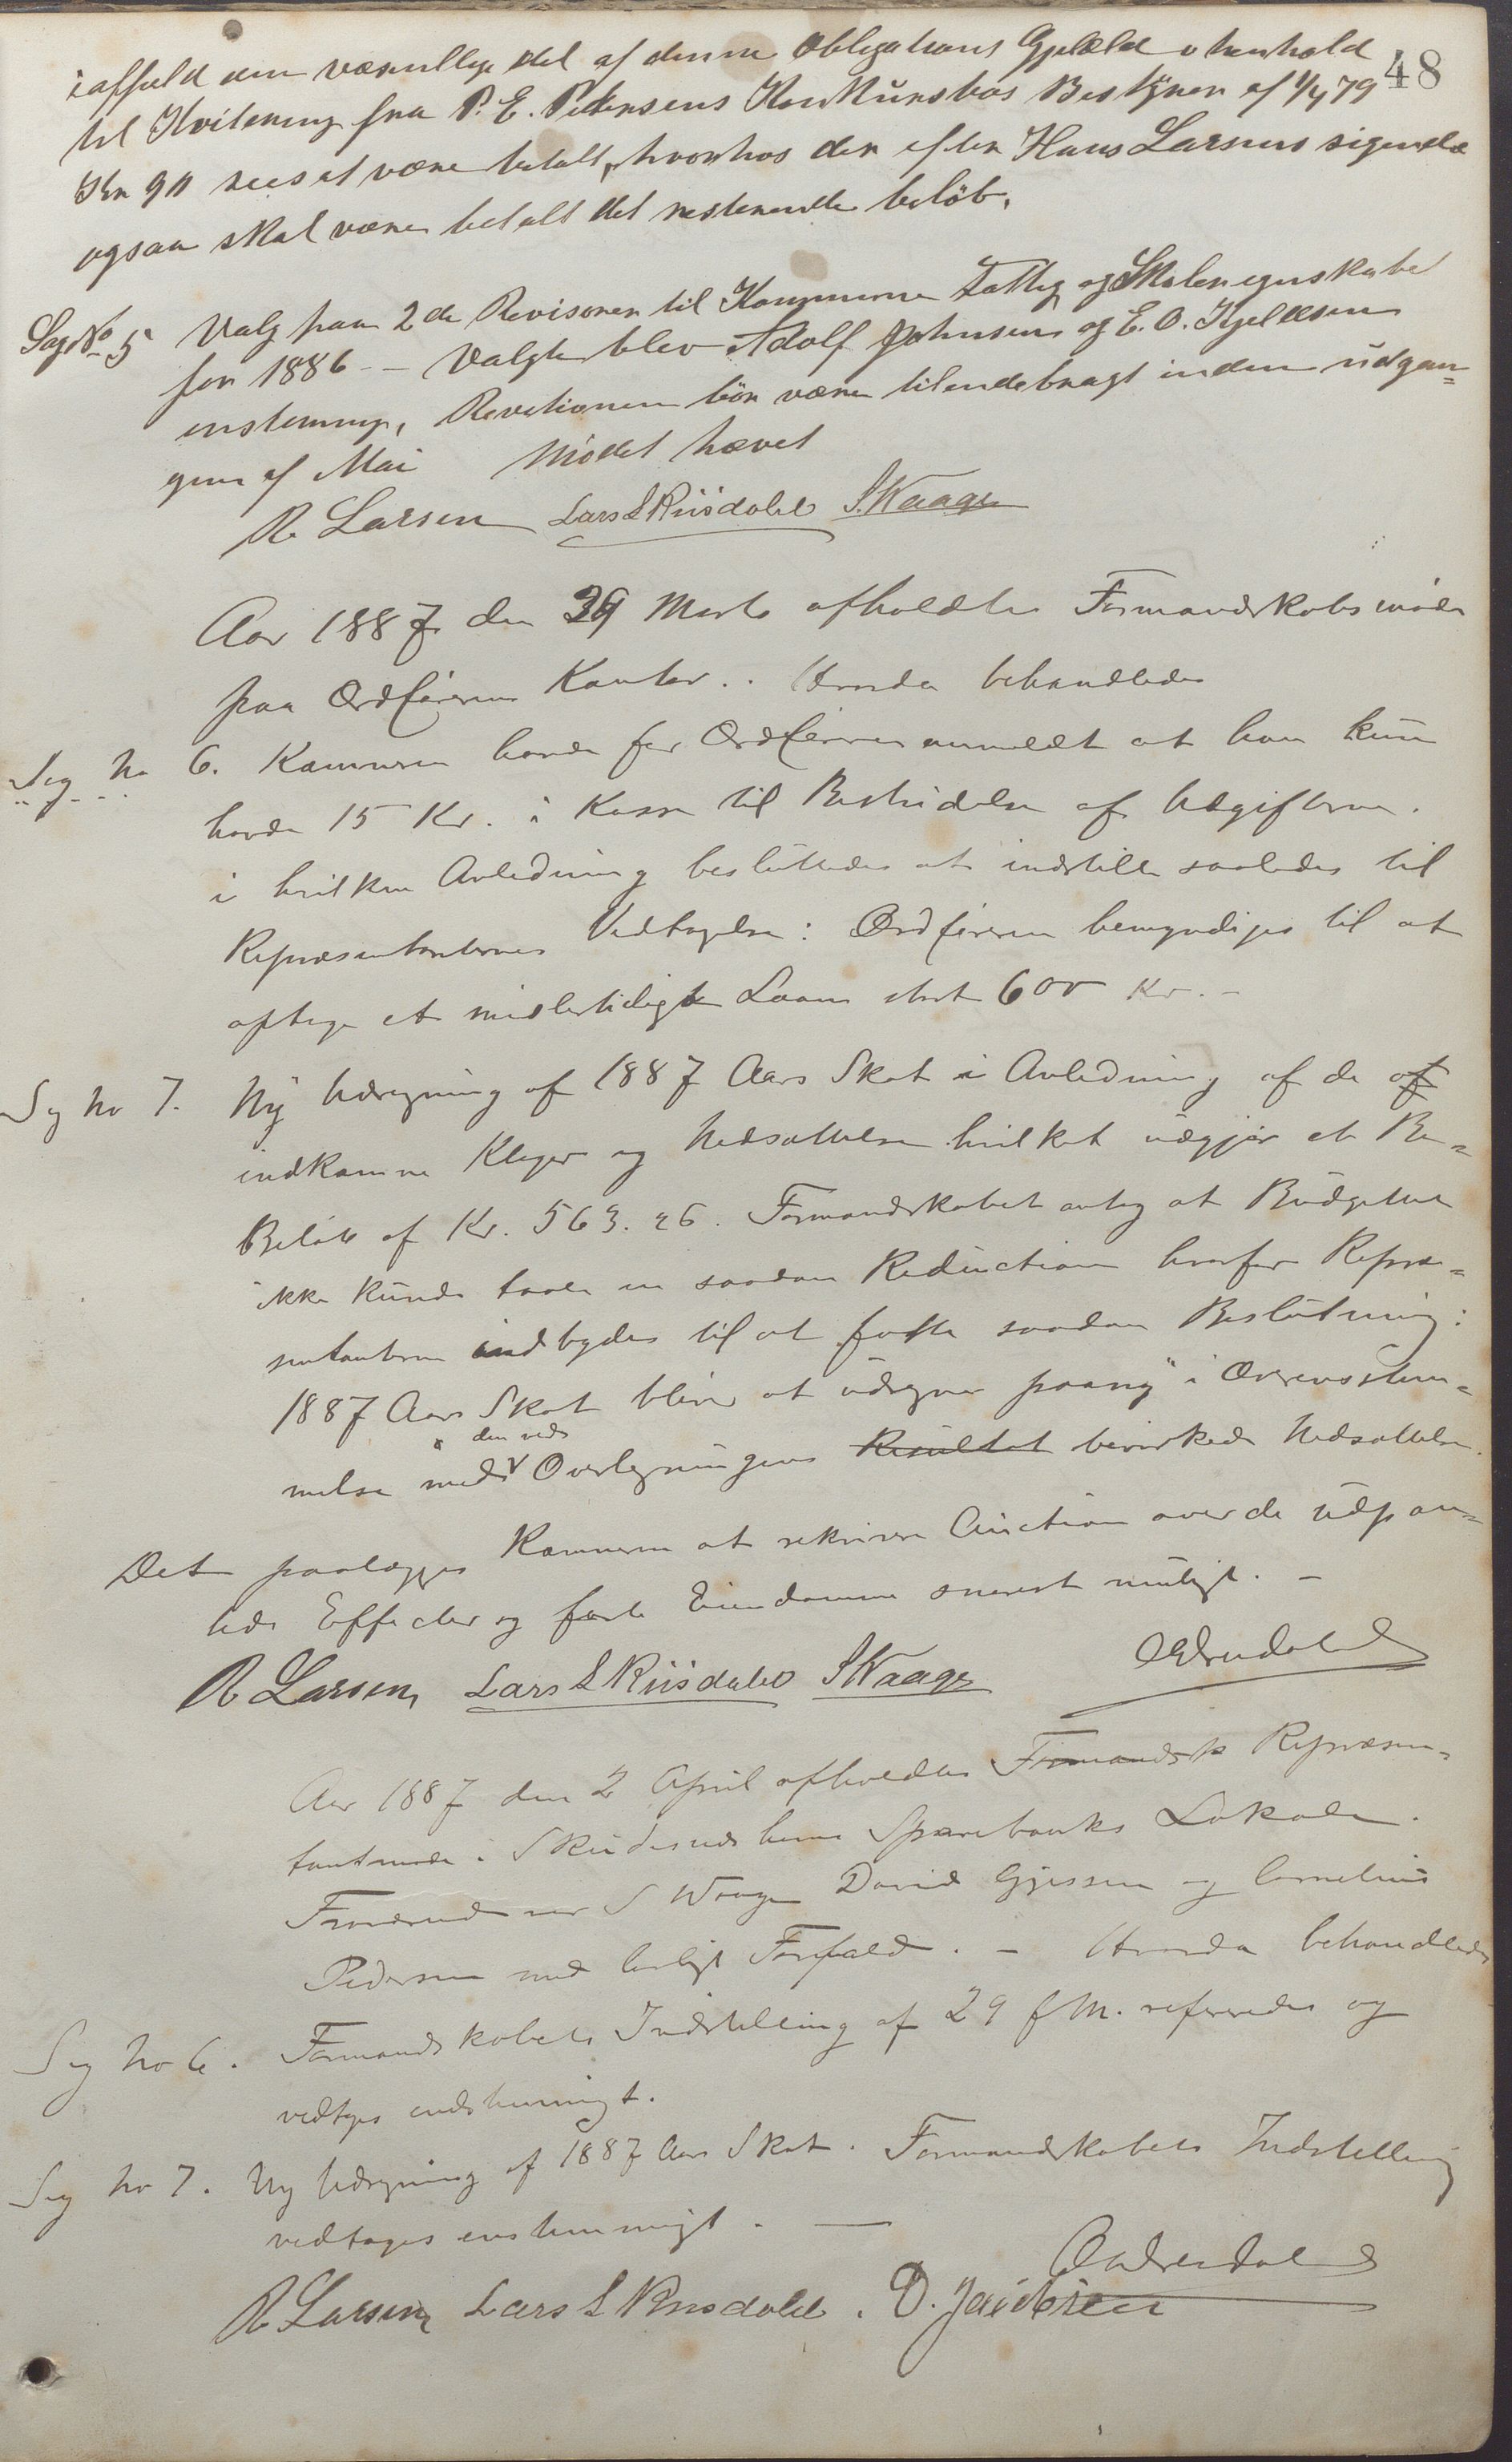 48
iaffald den væsentlige del af denne Obligations Gjæld i henhold
til Kvitering fra P. E. Pedersens Konkursbos Bestyrer af 1/4 79
Kr 90 sees at være betalt, hvorhos der efter Hans Larsens sigende
ogsaa skal være betalt det resterende beløb.
Sag No 5 Valg paa 2de Revisorer til Kommune Fattig og Skoleregnskabet
for 1886 – Valgte blev Adolf Johnsen og E. O. Kjeldsen
enstemmig, Revetionen bør være tilendebragt inden udgan=
gen af Mai Mødet hævet
R Larsen Lars L Riisdahl S. Waage
Aar 1887 den 29 Marts afholdtes Formandskabsmøde
paa Ordførerens Kontor. Hvorda behandledes
Sag No 6. Kæmneren havde for Ordføreren anmeldt at han kun
havde 15 Kr. i Kassen til Bestridelse af Udgifterne.
i hvilken Anledning besluttedes at indstille saaledes til
Repræsentanternes Vedtagelse: Ordføreren bemyndiges til at
optage et midlertidigt Laan stort 600 Kr. –
Sag No 7. Ny Udregning af 1887 Aars Skat i Anledning af de af
indkomne Klager og Nedsættelse hvilket udgjør et Be=
Beløb af Kr. 563.26. Formandskabet antog at Budgettet
ikke kunde taale en saadan Reduction hvorfor Repræ=
sentanterne indbydes til at fatte saadan Beslutning:
1887 Aars Skat bliver at udregne paany i Overensstem=
melse med den ved Overligningens Resultat bevirkede Nedsættelse.
Det paalægges Kæmneren at rekvirere Auction over de udpan=
tede Effecter og faste Eiendomme snarest muligt. –
R Larsen, Lars L Riisdahl S Waage
Aar 1887 den 2 April afholdtes Formandsk Repræsen=
tantmøde i Skudesneshavns Sparebanks Lokale.
Fraværende var S Waage David Gjessen og Cornelius
Pedersen med lovligt Forfald. – Hvorda behandledes
Sag No 6. Formandskabets Indstilling af 29 f M. refereredes og
vedtoges endstemmigt.
Sag No 7. Ny Udregning af 1887 Aars Skat. Formandskabets Indstilling
vedtages enstemmigt. —
R Larsen Lars L Riisdahl. D. Jacobsen